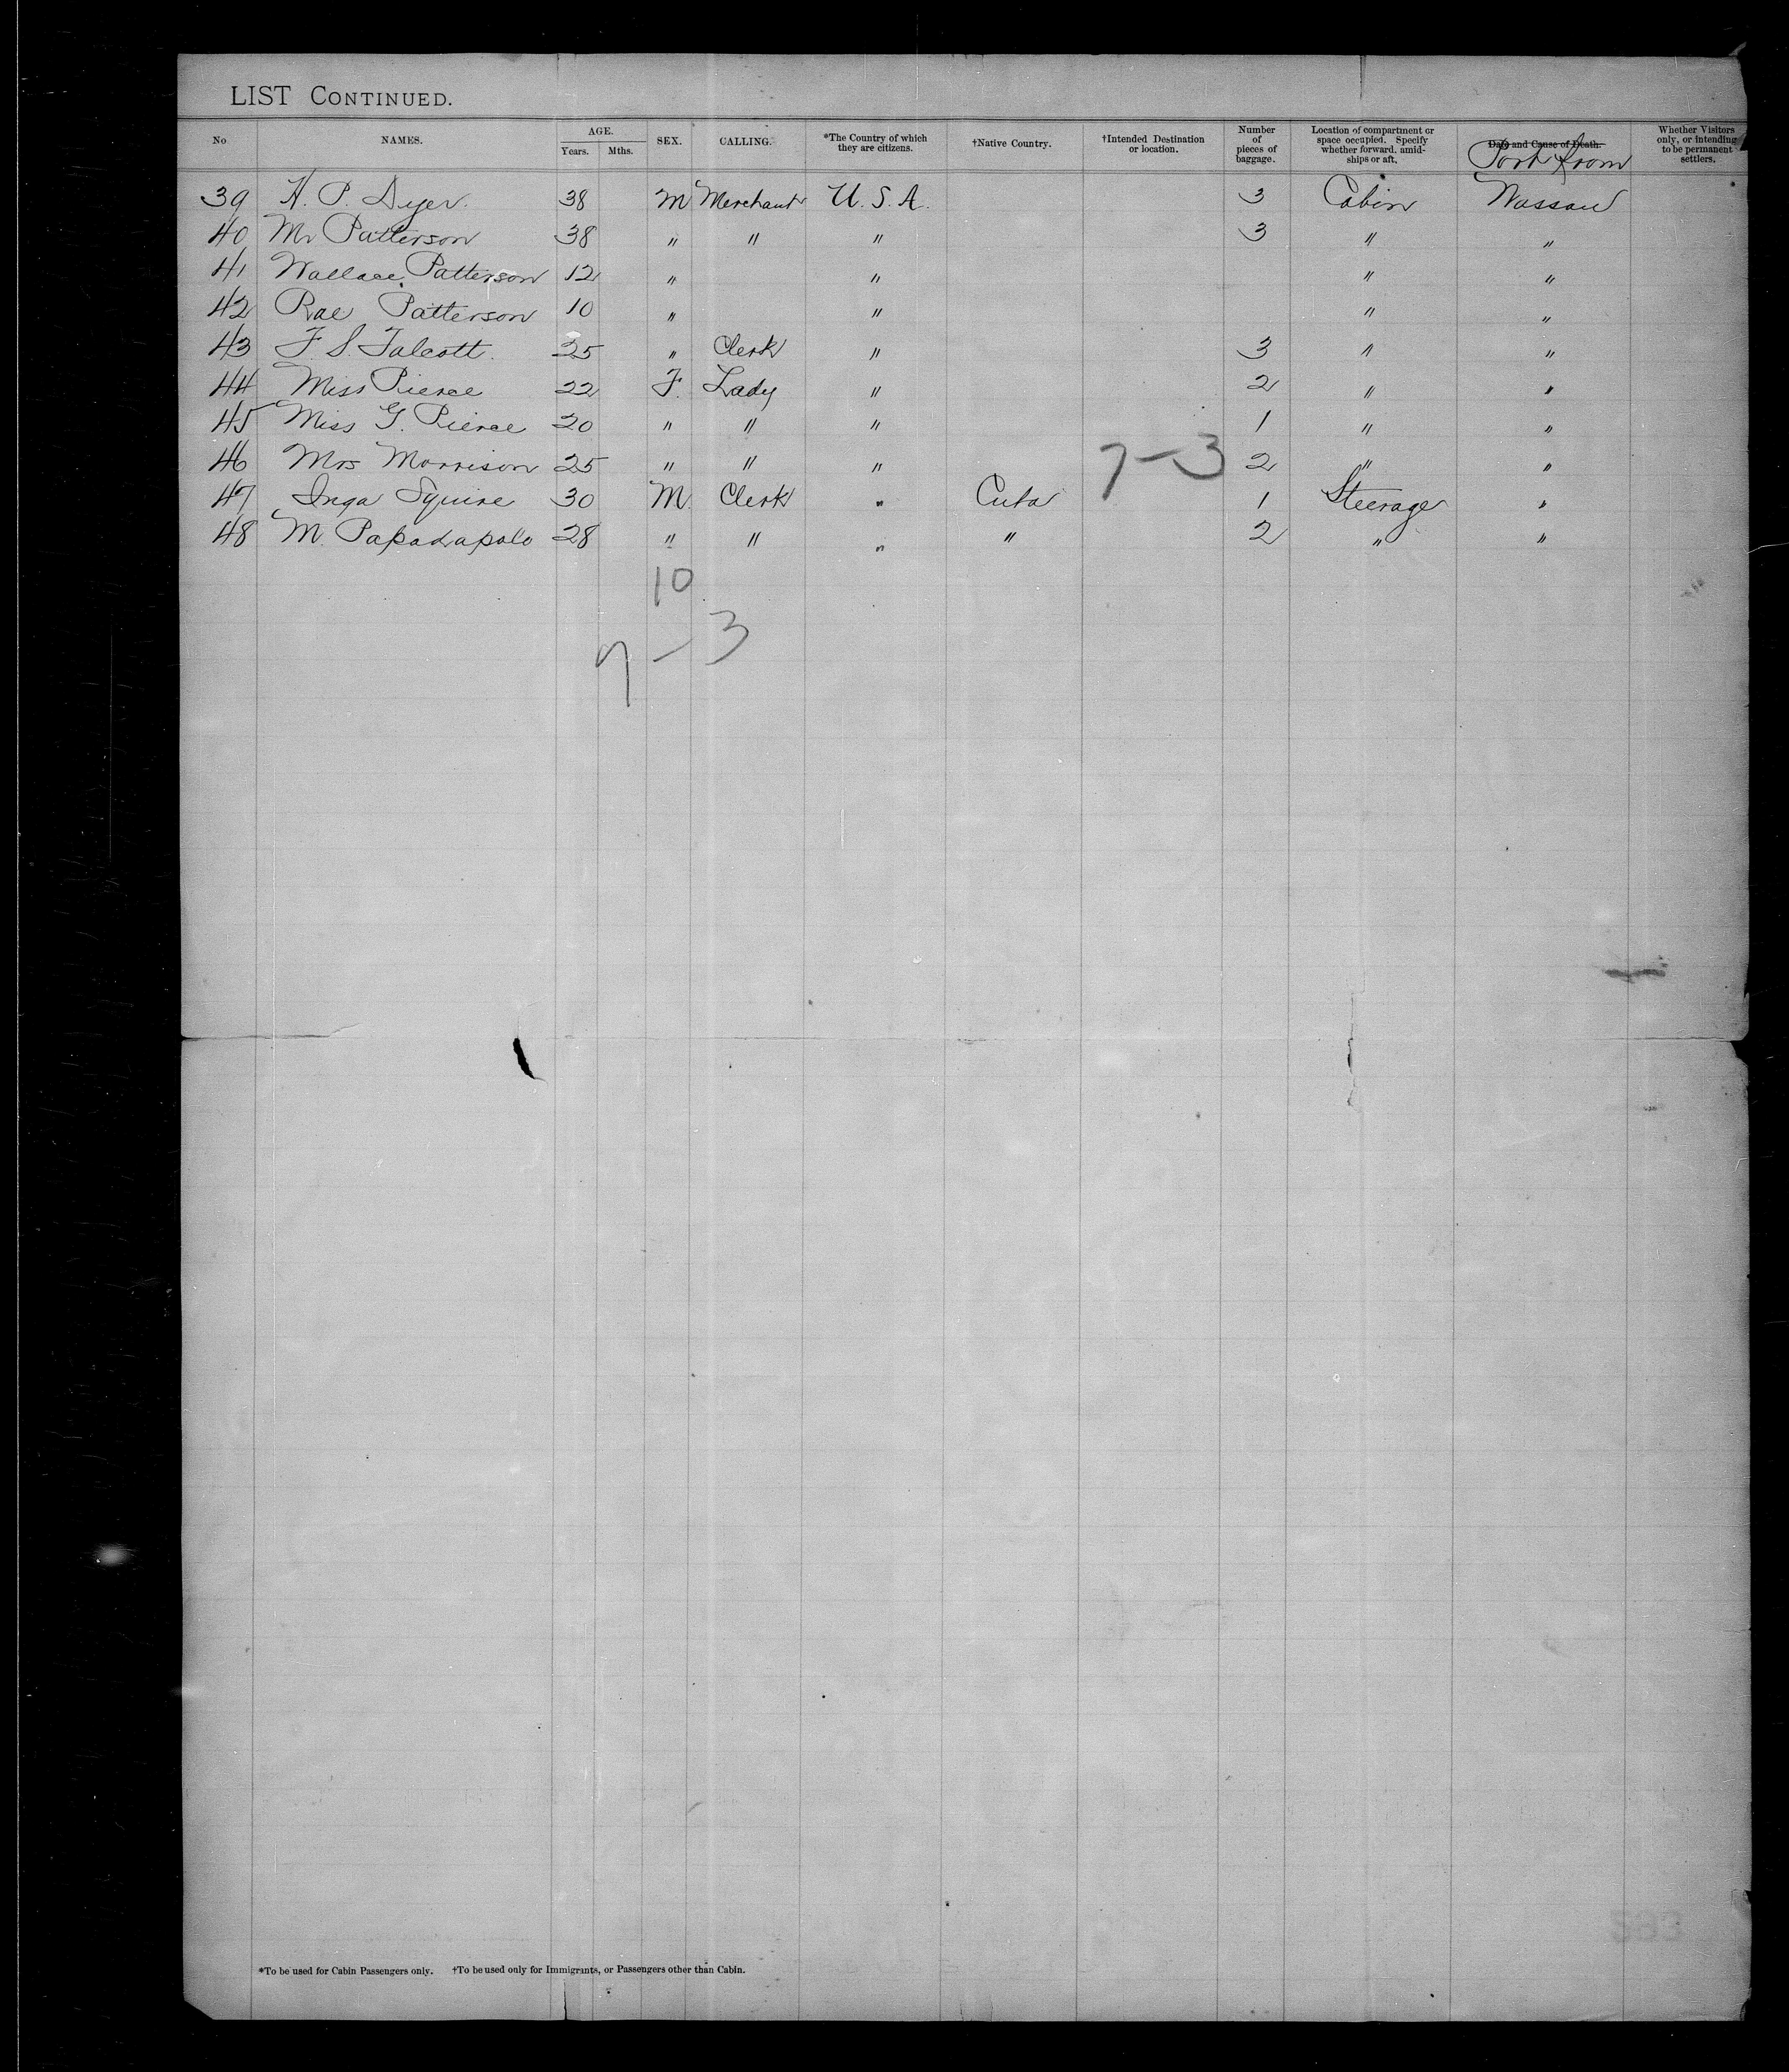 LIST CONTINUED.
No NAMES. AGE. Years. Mths. SEX. CALLING. *The Country of which they are citizens. †Native Country. †Intended Destination or location. Number of pieces of baggage. Location of compartment or space occupied. Specify whether forward, amidships or aft. Date and Cause of Death. Port from Whether Visitors only, or intending to be permanent settlers.
39 H. P. Dyer. 38 M Merchant U. S. A. 3 Cabin Nassau
40 Mr Patterson 38 " " " 3 " "
41 Wallace Patterson 12 " " " "
42 Rae Patterson 10 " " " "
43 F. S. Talcott. 25 " Clerk " 3 " "
44 Miss Pierce 22 F. Lady " 2 " "
45 Miss G. Pierce 20 " " " 1 " "
46 Mrs Morrison 25 " " " 7-3 2 " "
47 Inga Squire 30 M Clerk " Cuba 1 Steerage "
48 M. Papadapolo 28 " " " " 2 " "
10
7-3
*To be used for Cabin Passengers only. †To be used only for Immigrants, or Passengers other than Cabin.